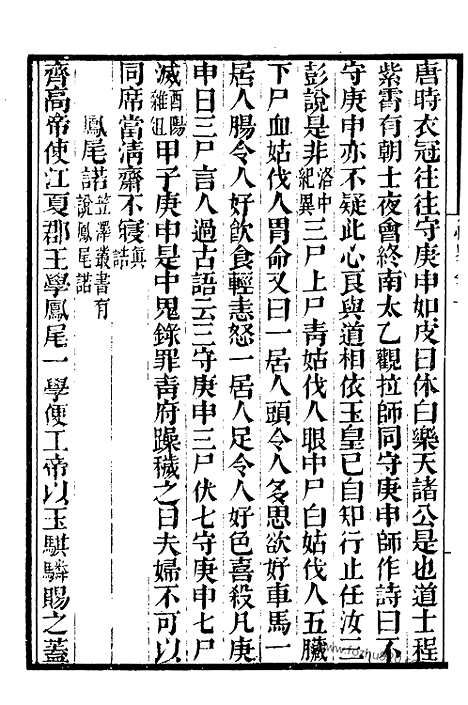 唐時衣冠往往守庚申如皮日休白樂天諸公是也道士程
紫霄有朝士夜會終南太乙觀拉師同守庚申師作詩曰不
守庚申亦不疑此心良與道相依玉皇已自知行止任汝三
彭說是非洛中紀異三尸上尸青姑伐人眼中尸白姑伐人五臟
下尸血姑伐人胃命又曰一居人頭令人多思欲好車馬一
居人腸令人好飲食輕恚怒一居人足令人好色喜殺凡庚
申日三尸言人過古語云三守庚申三尸伏七守庚申七尸
滅酉陽雜俎甲子庚申是中鬼錄罪青府躁穢之日夫婦不可以
同席當清齋不寢真誥
鳳尾諾笠澤叢書有說鳳尾諾
齊高帝使江夏郡王學鳳尾一學便工帝以玉騏驎賜之蓋